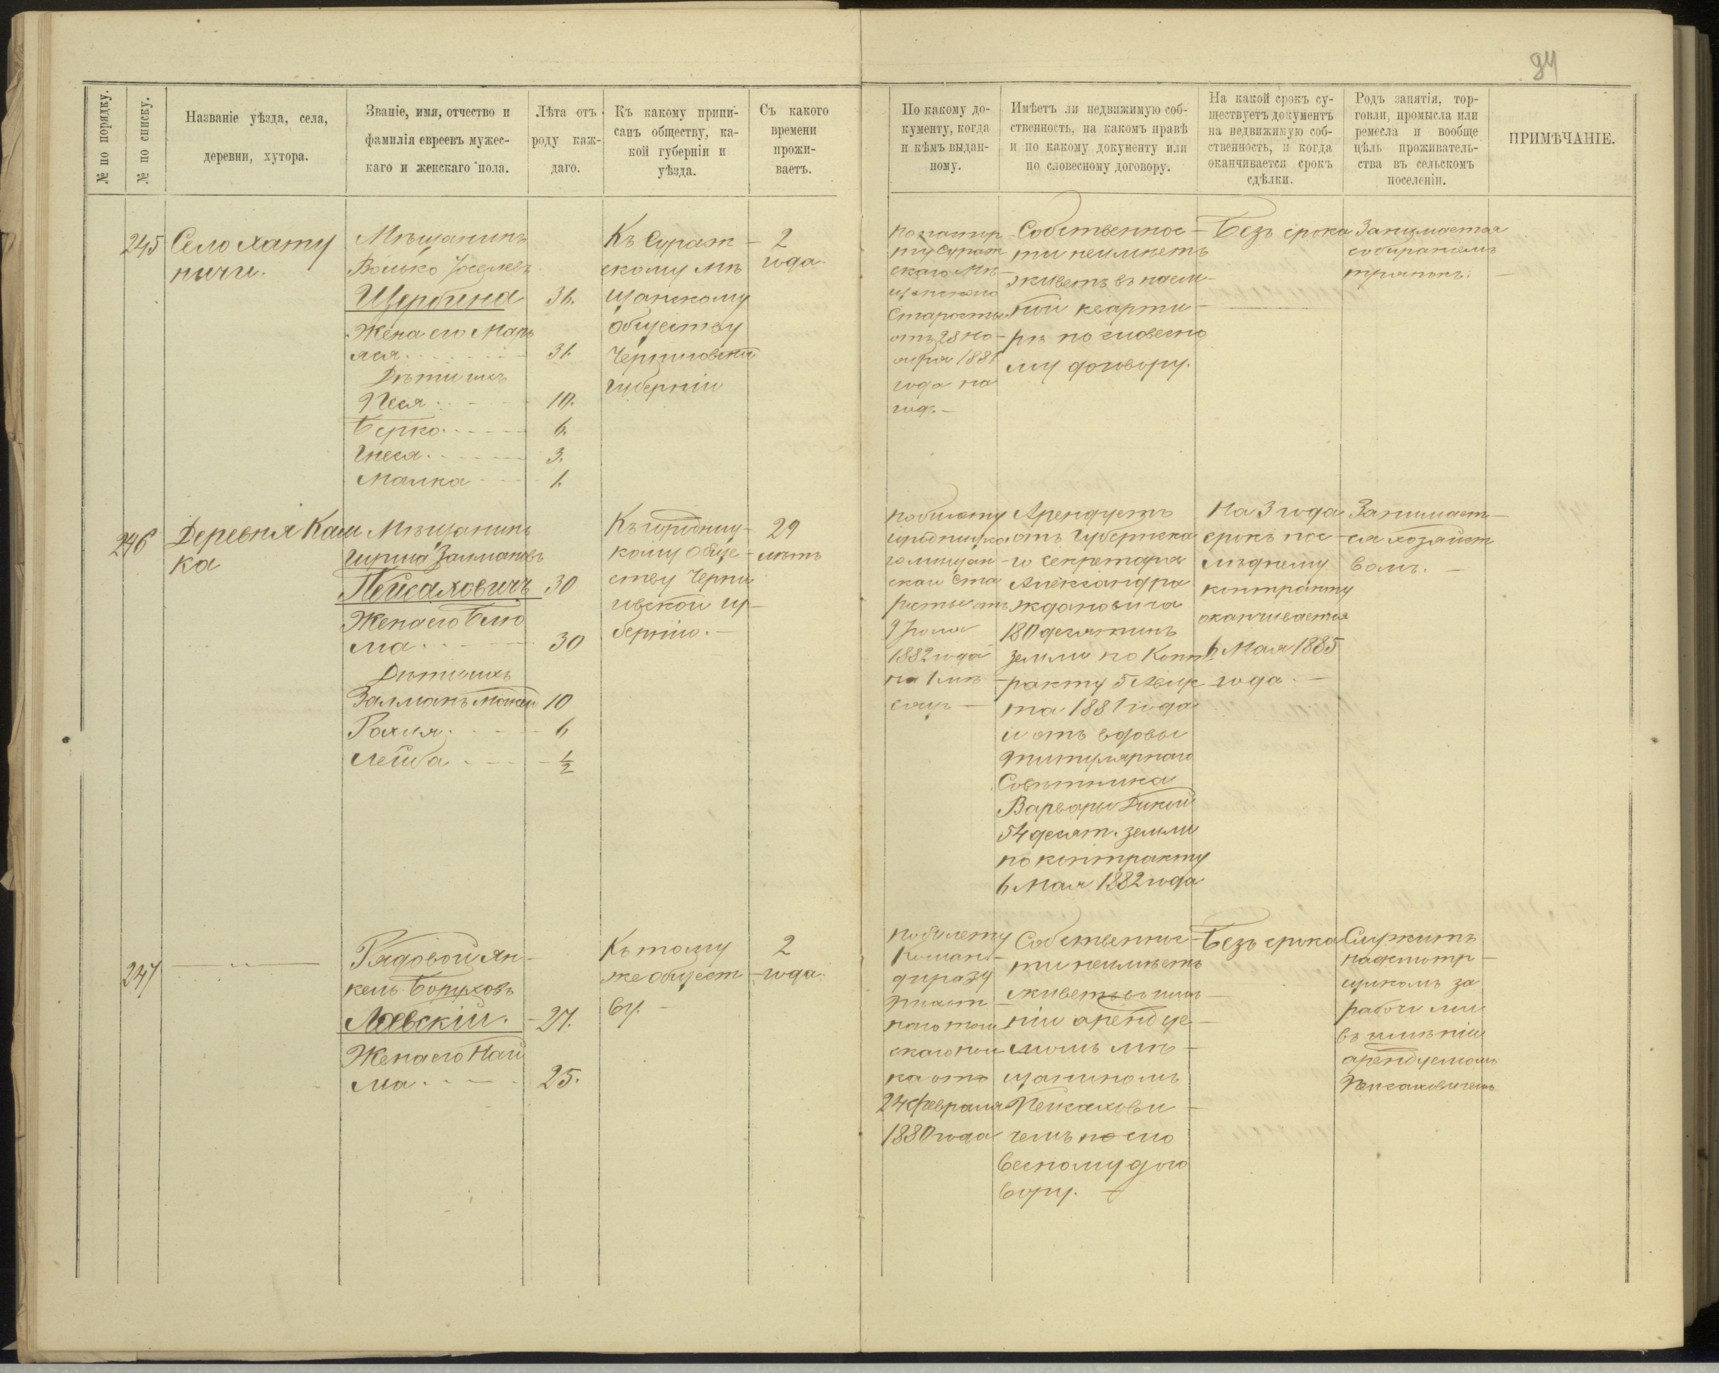 94
№ по порядку.
№ по списку.
Названіе уѣзда, села,
деревни, хутора.
Званіе, имя, отчество и
фамилія евреевъ мужес-
каго и женскаго пола.
Лѣта отъ
роду каж-
даго.
Къ какому припи-
санъ обществу, ка-
кой губерніи и
уѣзда.
Съ какого
времени
прожи-
ваетъ.
По какому до-
кументу, когда
и кѣмъ выдан-
ному.
Имѣетъ ли недвижимую соб-
ственность, на какомъ правѣ
и по какому документу или
по словесному договору.
На какой срокъ су-
ществуетъ документъ
на недвижимую соб-
ственность, и когда
оканчивается срокъ
сдѣлки.
Родъ занятія, тор-
говли, промысла или
ремесла и вообще
цѣль проживатель-
ства въ сельскомъ
поселеніи.
ПРИМѢЧАНІЕ.
245
Село Хату
ничи.
Мѣщанинъ
Волько Іоселевъ
Щербина 31.
Жена его Мары
яся. 31.
Дѣти ихъ
Песя. 10.
Берко. 6.
Гнеся. 3.
Малка 1.
Къ Сураж
скому мѣ
щанскому
обществу
Черниговской
губерніи
2
года.
ту Сураж
скаго мѣ
щанскаго
Старосты
отъ 28 но
ября 1881
года на
годъ.
Собственнос
ти неимѣетъ
живетъ въ наем
ной кварти
рѣ по словесно
му договору.
Безъ срока
Занимается
собираніемъ
тряпокъ.
246
Деревня Каш
ка
Мѣщанинъ
Залмановъ
Пейсаховичъ 30
Жена его Блю
ма. 30
Дѣти ихъ
Залманъ 10
Рохля. 6
Лейба ½
Къ городниц
кому обще
ству Черни
говской гу
берніи.
29
лѣтъ
По билету
городницка
го мѣщан
скаго Ста
росты отъ
1882 года
на 1 мѣ
сяцъ
Арендуетъ
отъ Губернска
го Секретаря
Александра
Ждановича
180 десятинъ
земли по Конт
ракту 5 Авгус
та 1881 года
и отъ вдовы
Титулярнаго
Совѣтника
Варвары Дикой
54 десят. земли
по контракту
6 Мая 1882 года
На 3 года
срокъ пос
лѣднему
контракту
оканчивается
6 Мая 1885
года.
Занимает
ся хозяйст
вомъ.
247
Рядовой Ян
кель Боруховъ
Лаевскій. 27.
Жена его Наи
ма. 25.
Къ тому
же общест
ву.
2
года.
По билету
Коман
дира 37
скаго пол
ка отъ
24 Февраля
1880 года
Собственнос
ти неимѣетъ
живетъ въ имѣ
ніи арендуе
момъ мѣ
щаниномъ
Пейсахови
чемъ по сло
весному дого
вору.
Безъ срока
Служитъ
надсмотр
щикомъ за
рабочими
въ имѣніи
арендуемомъ
Пейсаховичемъ